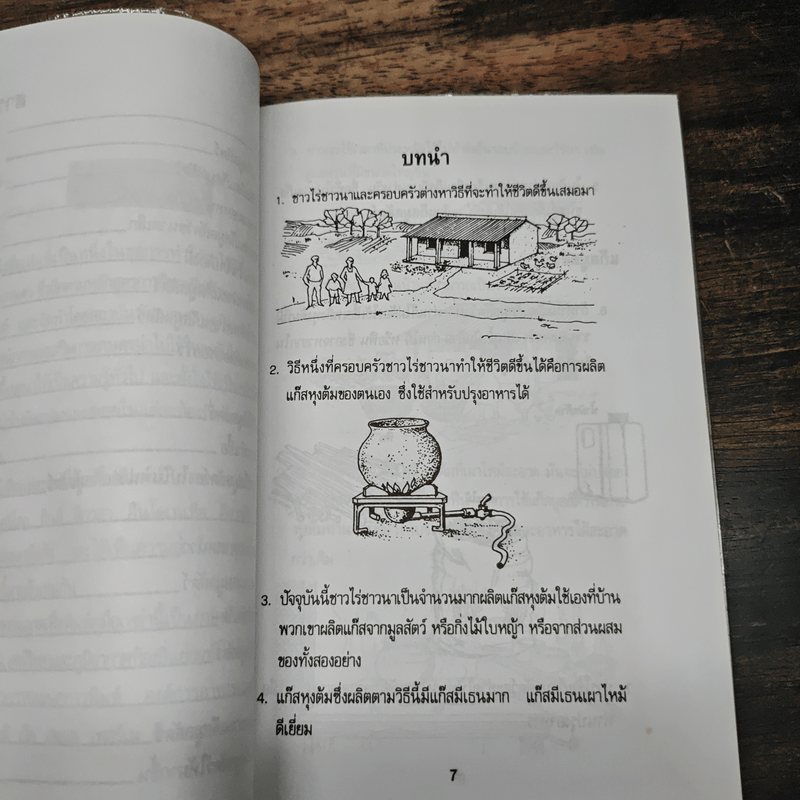 บทนำ
1. ชาวไร่ชาวนาและครอบครัวต่างหาวิธีที่จะทำให้ชีวิตดีขึ้นเสมอมา
2. วิธีหนึ่งที่ครอบครัวชาวไร่ชาวนาทำให้ชีวิตดีขึ้นได้คือการผลิต
แก๊สหุงต้มของตนเอง ซึ่งใช้สำหรับปรุงอาหารได้
3. ปัจจุบันนี้ชาวไร่ชาวนาเป็นจำนวนมากผลิตแก๊สหุงต้มใช้เองที่บ้าน
พวกเขาผลิตแก๊สจากมูลสัตว์ หรือกิ่งไม้ใบหญ้า หรือจากส่วนผสม
ของทั้งสองอย่าง
4. แก๊สหุงต้มซึ่งผลิตตามวิธีนี้มีแก๊สมีเธนมาก แก๊สมีเธนเผาไหม้
ดีเยี่ยม
7